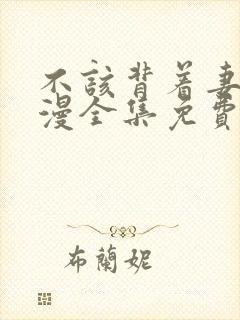 不該背着妻
漫全集免費
布蘭妮